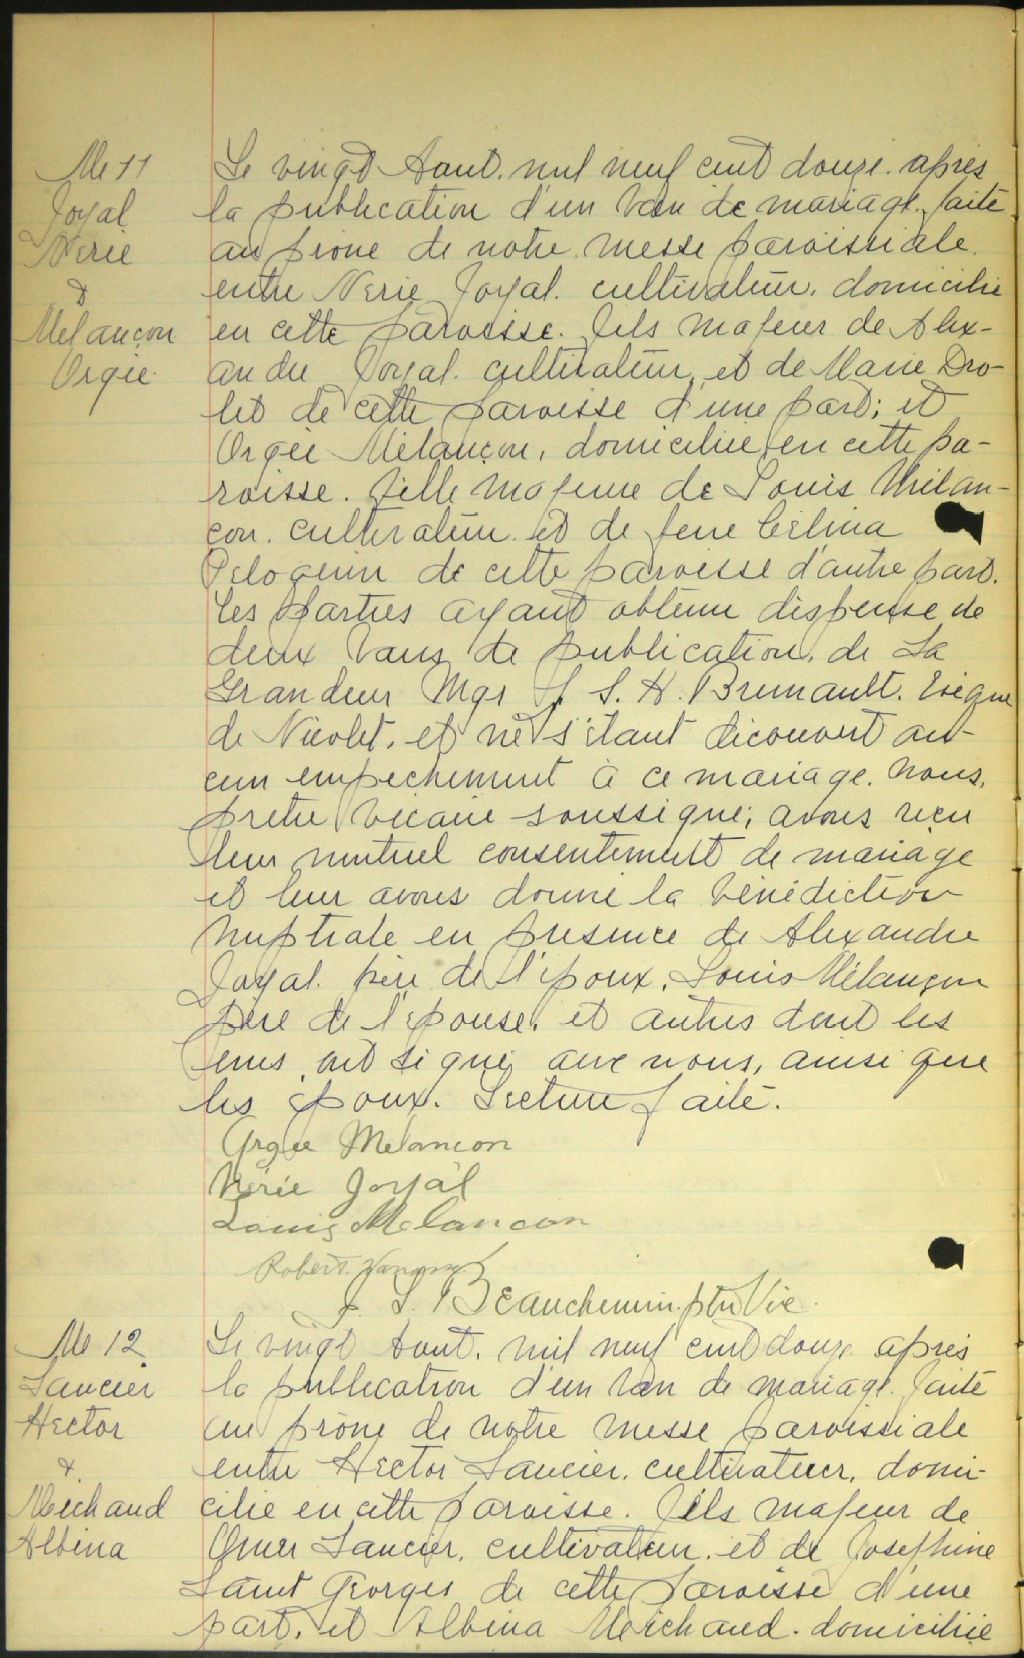 M 11
Joyal
Nérée
&
Melançon
Orgée
Le vingt Aout, mil neuf cent douze, après
la publication d'un ban de mariage, faite
au prône de notre messe paroissiale
entre Nérée Joyal, cultivateur, domicilié
en cette paroisse. Fils majeur de Alex-
andre Joyal, cultivateur, et de Marie Dro-
let de cette paroisse d'une part; et
Orgée Mélançon, domiciliée en cette pa-
roisse. Fille majeure de Louis Mélan-
çon, cultivateur et de feue Célina
Péloquin de cette paroisse d'autre part.
Les parties ayant obtenu dispense de
deux bans de publication, de Sa
Grandeur Mgr J. S. H. Brunault. Evêque
de Nicolet, et ne s'étant découvert au-
cun empêchement à ce mariage. Nous,
prêtre vicaire soussigné, avons reçu
leur mutuel consentement de mariage
et leur avons donné la bénédiction
nuptiale en présence de Alexandre
Joyal. père de l'époux, Louis Mélançon
père de l'épouse, et autres dont les
uns ont signé avec nous, ainsi que
les époux. Lecture faite.
Orgée Melancon
Nérée Joyal
Louis Melancon
Robert
J. S. Beauchemin ptre Vic.
M 12
Laucier
Hector
&
Meichaud
Albina
Le vingt Aout, mil neuf cent douze après
la publication d'un ban de mariage, faite
au prône de notre messe paroissiale
entre Hector Laucier, cultivateur, domi-
cilié en cette paroisse. Fils majeur de
Omer Laucier, cultivateur, et de Josephine
Saint Georges de cette paroisse d'une
part, et Albina Meichaud, domiciliée